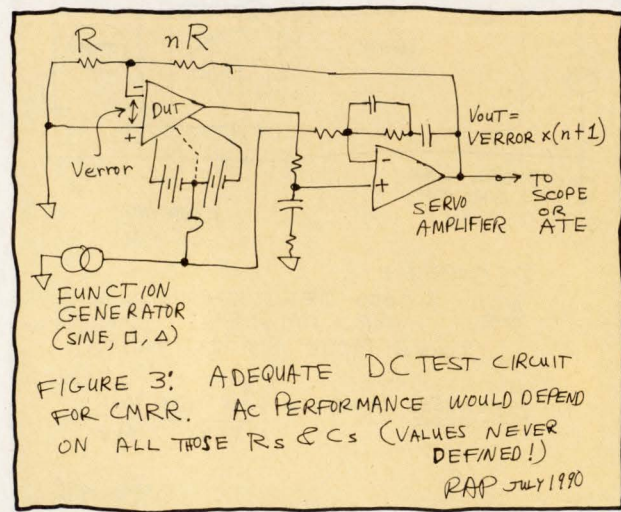 R
nR
-
DUT
+
Verror
VOUT =
VERROR x (n+1)
-
+
SERVO
AMPLIFIER
TO
SCOPE
OR
ATE
FUNCTION
GENERATOR
(SINE, □, △)
FIGURE 3: ADEQUATE DC TEST CIRCUIT
FOR CMRR. AC PERFORMANCE WOULD DEPEND
ON ALL THOSE Rs & Cs (VALUES NEVER
DEFINED!)
RAP JULY 1990